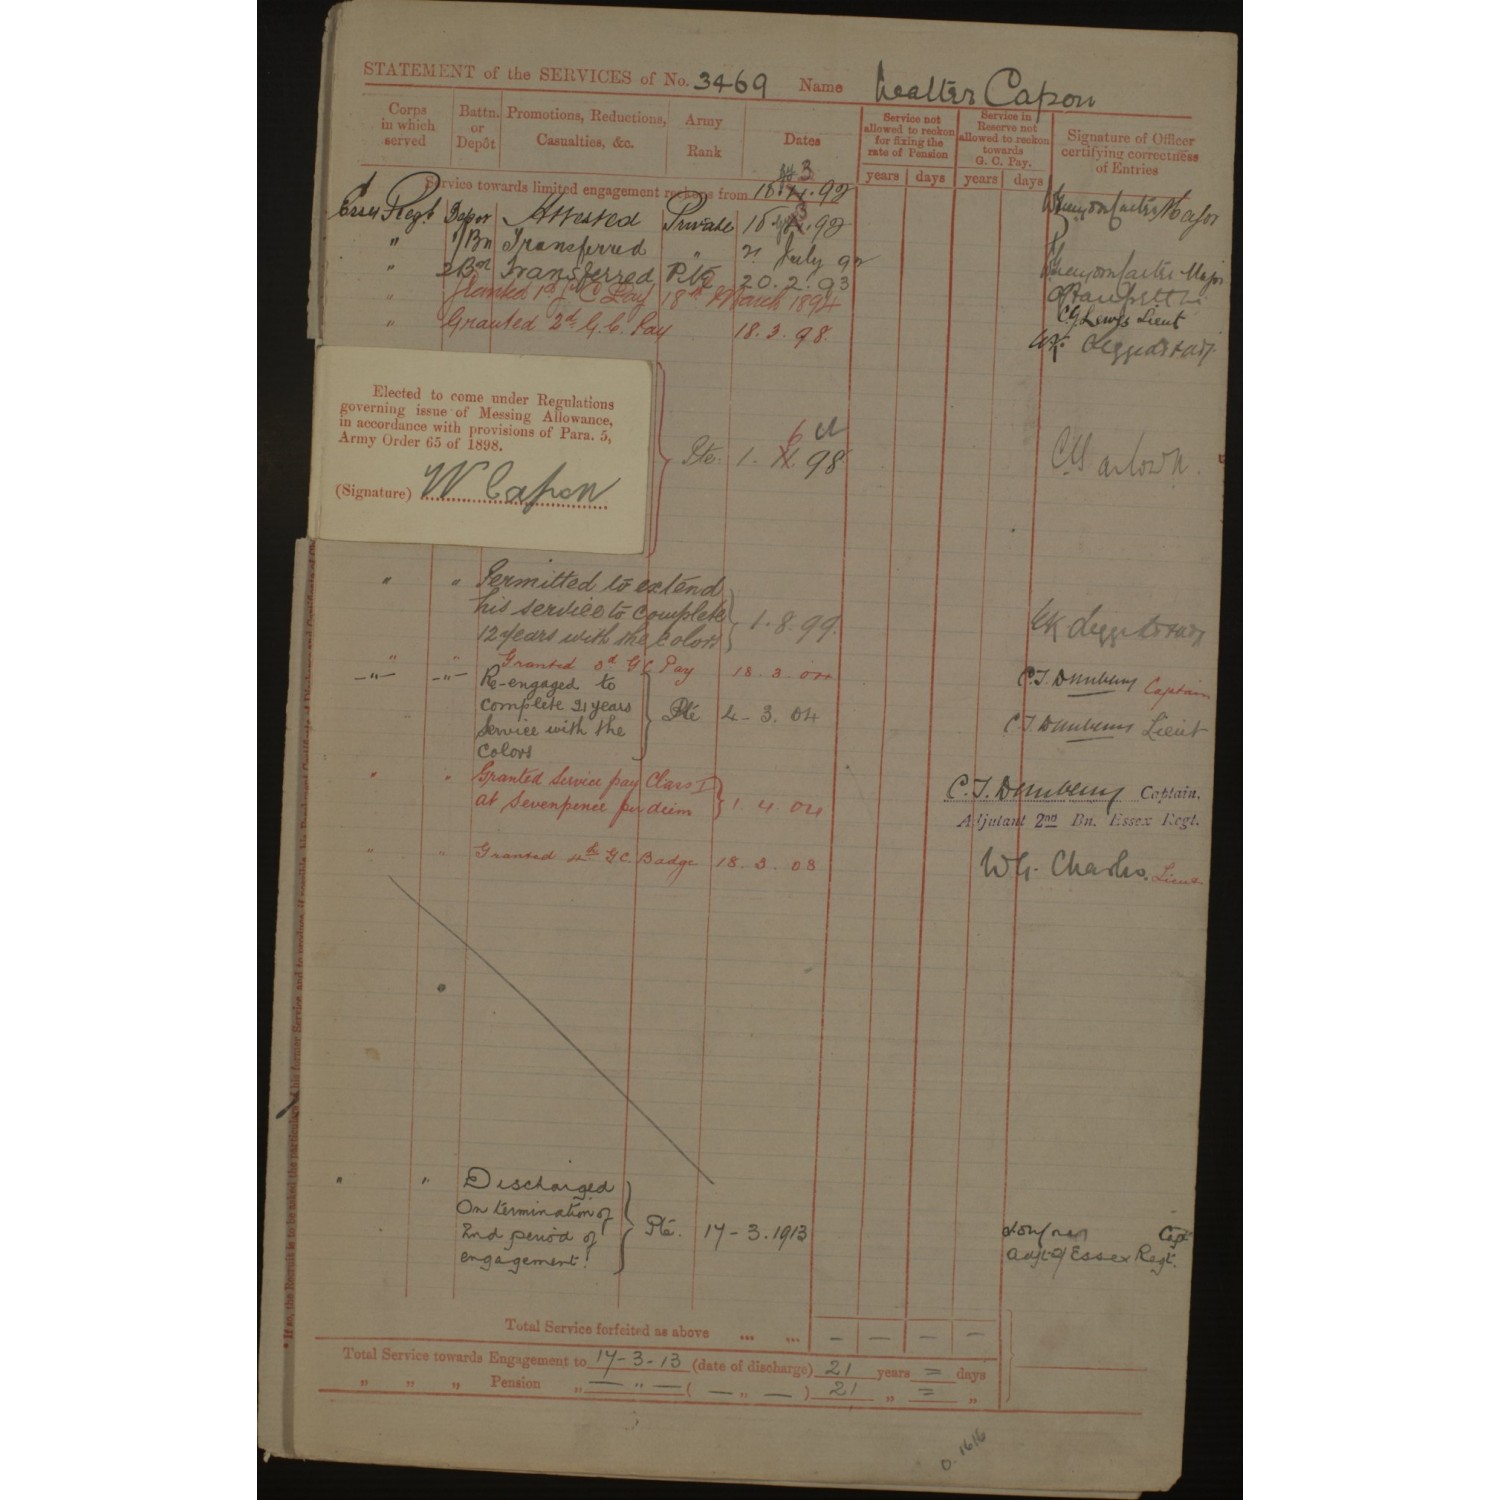 STATEMENT of the SERVICES of No. 3469 Name Walter Capon
Corps in which served
Battn. or Depôt
Promotions, Reductions, Casualties, &c.
Army Rank
Dates
Service not allowed to reckon for fixing the rate of Pension
Service in Reserve not allowed to reckon towards G. C. Pay.
Signature of Officer certifying correctness of Entries
years days years days
Service towards limited engagement reckons from 18.3.92
Essex Regt Depot Attested Private 18.3.92 Major
" 1/Bn Transferred " July 92
" 2 Bn Transferred Pte 20.2.93 Major
" Granted 1st G C Pay 18th March 1894 Lieut
" Granted 2d G.C. Pay 18.3.98.
Elected to come under Regulations
governing issue of Messing Allowance,
in accordance with provisions of Para. 5,
Army Order 65 of 1898.
(Signature) W Capon
Pte. 1. 6 98
" " Permitted to extend
his service to complete
12 years with the colors 1.8.99.
" " Granted 3d G C Pay 18.3.04 Captain
—"— —"— Re-engaged to
complete 21 years
Service with the
Colors Pte 4-3.04 Lieut
" " Granted Service pay Class I
at Sevenpence per diem 1.4.04 Captain.
Adjutant 2nd Bn. Essex Regt.
" " Granted 4th G.C. Badge 18.3.08 W G. Charles. Lieut
" " Discharged
On termination of
2nd period of
engagement. Pte. 17-3.1913 Capt
Adjt of Essex Regt.
Total Service forfeited as above ... ... — — — —
Total Service towards Engagement to 17-3-13 (date of discharge) 21 years = days
" " " Pension " — " — ( — " — ) 21 " = "
D.1616